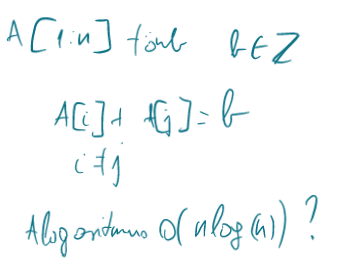 A[1:n] tömb b ∈ Z
A[i] + A[j] = b
i ≠ j
Alogoritmus O(n log(n)) ?